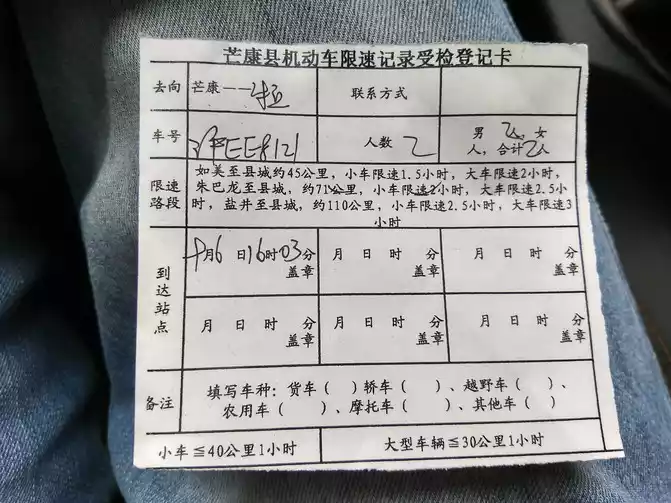 芒康县机动车限速记录受检登记卡
去向 芒康——拉 联系方式
车号 EE8121 人数 2 男 2人，女
人，合计2人
限速路段 如美至县城约45公里，小车限速1.5小时，大车限速2小时，
朱巴龙至县城，约71公里，小车限速2小时，大车限速2.5小
时，盐井至县城，约110公里，小车限速2.5小时，大车限速3
小时
到达站点 月6日16时03分 月 日 时 分 月 日 时 分
盖章 盖章 盖章
月 日 时 分 月 日 时 分 月 日 时 分
盖章 盖章 盖章
备注 填写车种：货车（ ）轿车（ ）、越野车（ ）、
农用车（ ）、摩托车（ ）、其他车（ ）
小车≦40公里1小时 大型车辆≦30公里1小时